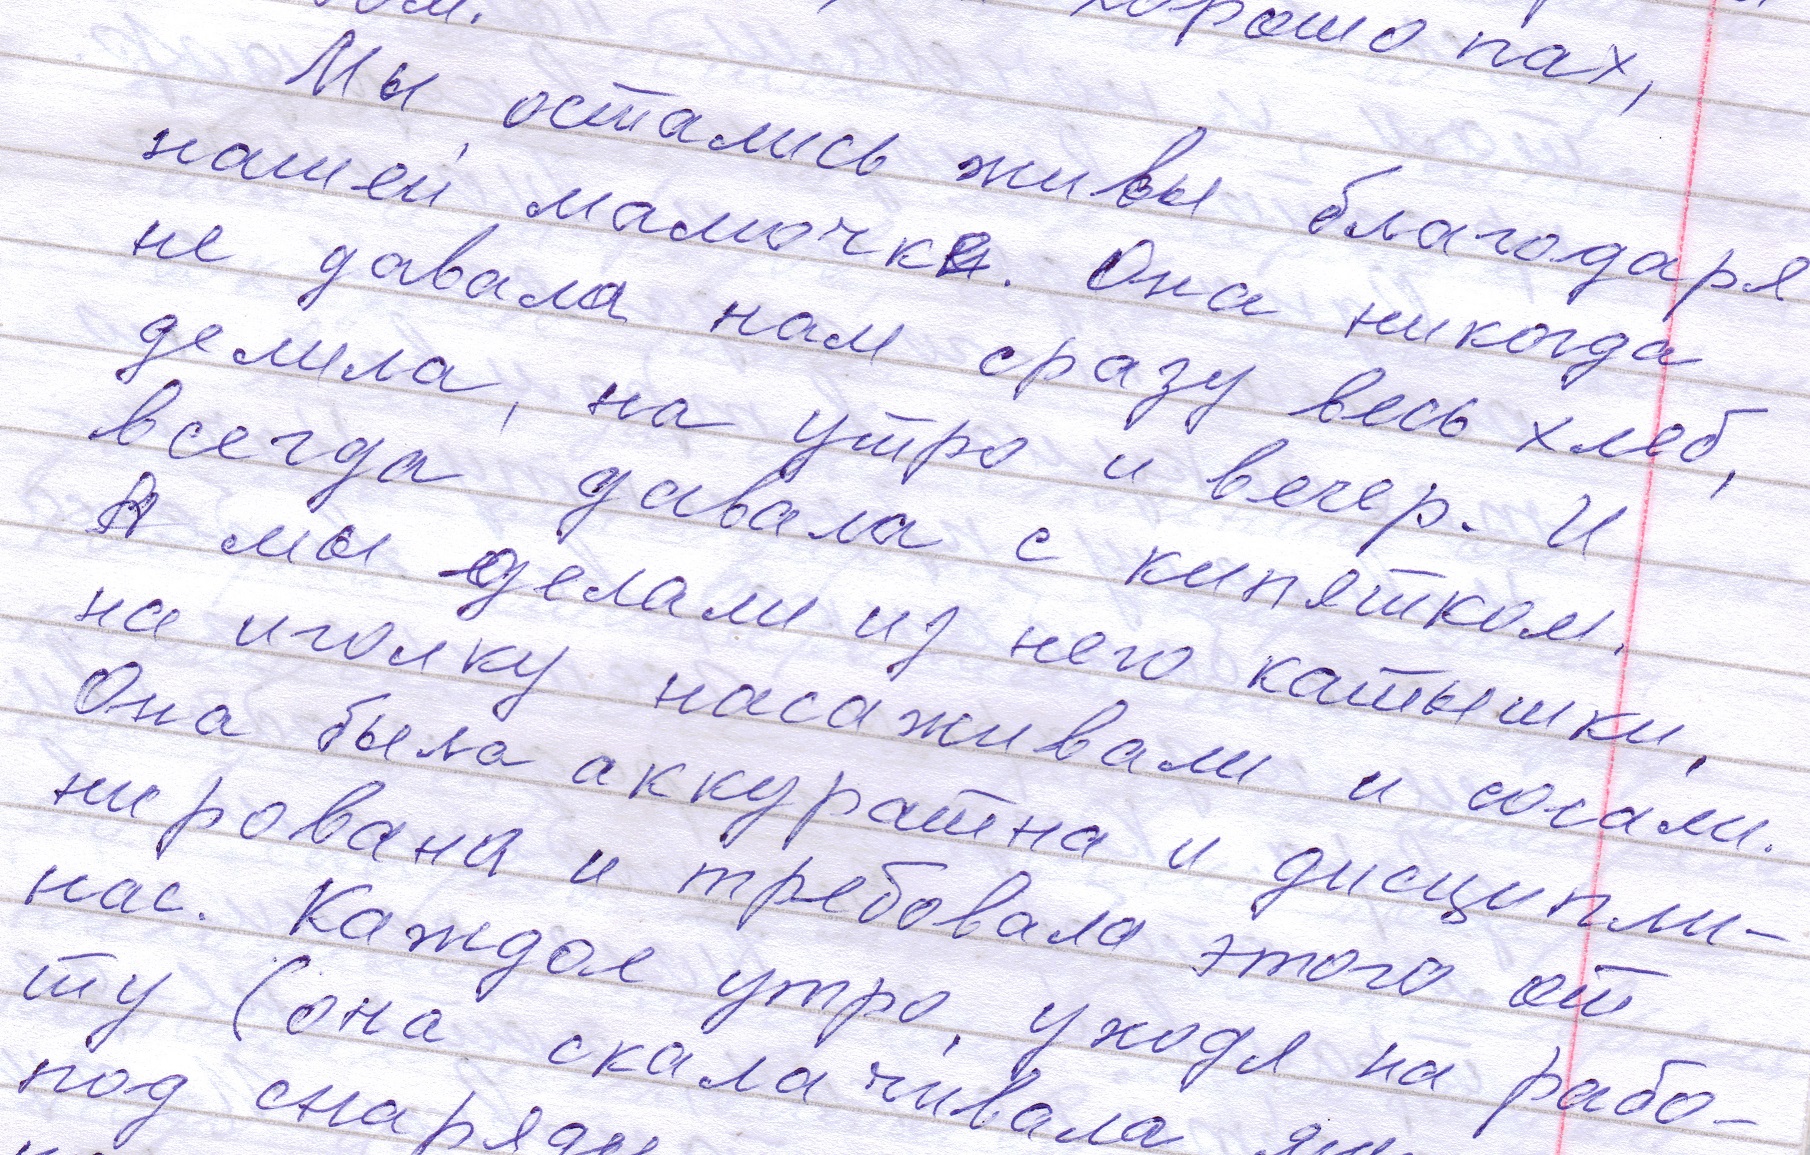 хорошо пах,
Мы остались живы благодаря
нашей мамочке. Она никогда
не давала нам сразу весь хлеб,
делила, на утро и вечер. И
всегда давала с кипятком.
А мы делали из него катышки,
на иголку насаживали и сосали.
Она была аккуратна и дисципли-
нирована и требовала этого от
нас. Каждое утро, уходя на рабо-
ту (она скалачивала
под снаряды